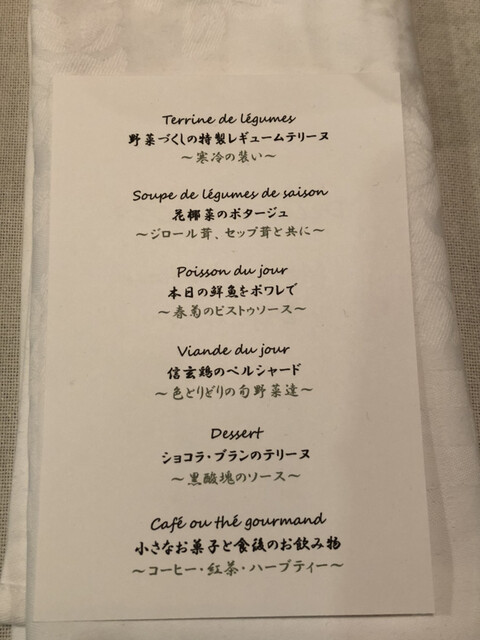 Terrine de légumes
野菜づくしの特製レギュームテリーヌ
～寒冷の装い～
Soupe de légumes de saison
花椰菜のポタージュ
～ジロール茸、セップ茸と共に～
Poisson du jour
本日の鮮魚をポワレで
～春菊のピストゥソース～
Viande du jour
信玄鶏のペルシャード
～色とりどりの旬野菜達～
Dessert
ショコラ・ブランのテリーヌ
～黒酸塊のソース～
Café ou thé gourmand
小さなお菓子と食後のお飲み物
～コーヒー・紅茶・ハーブティー～